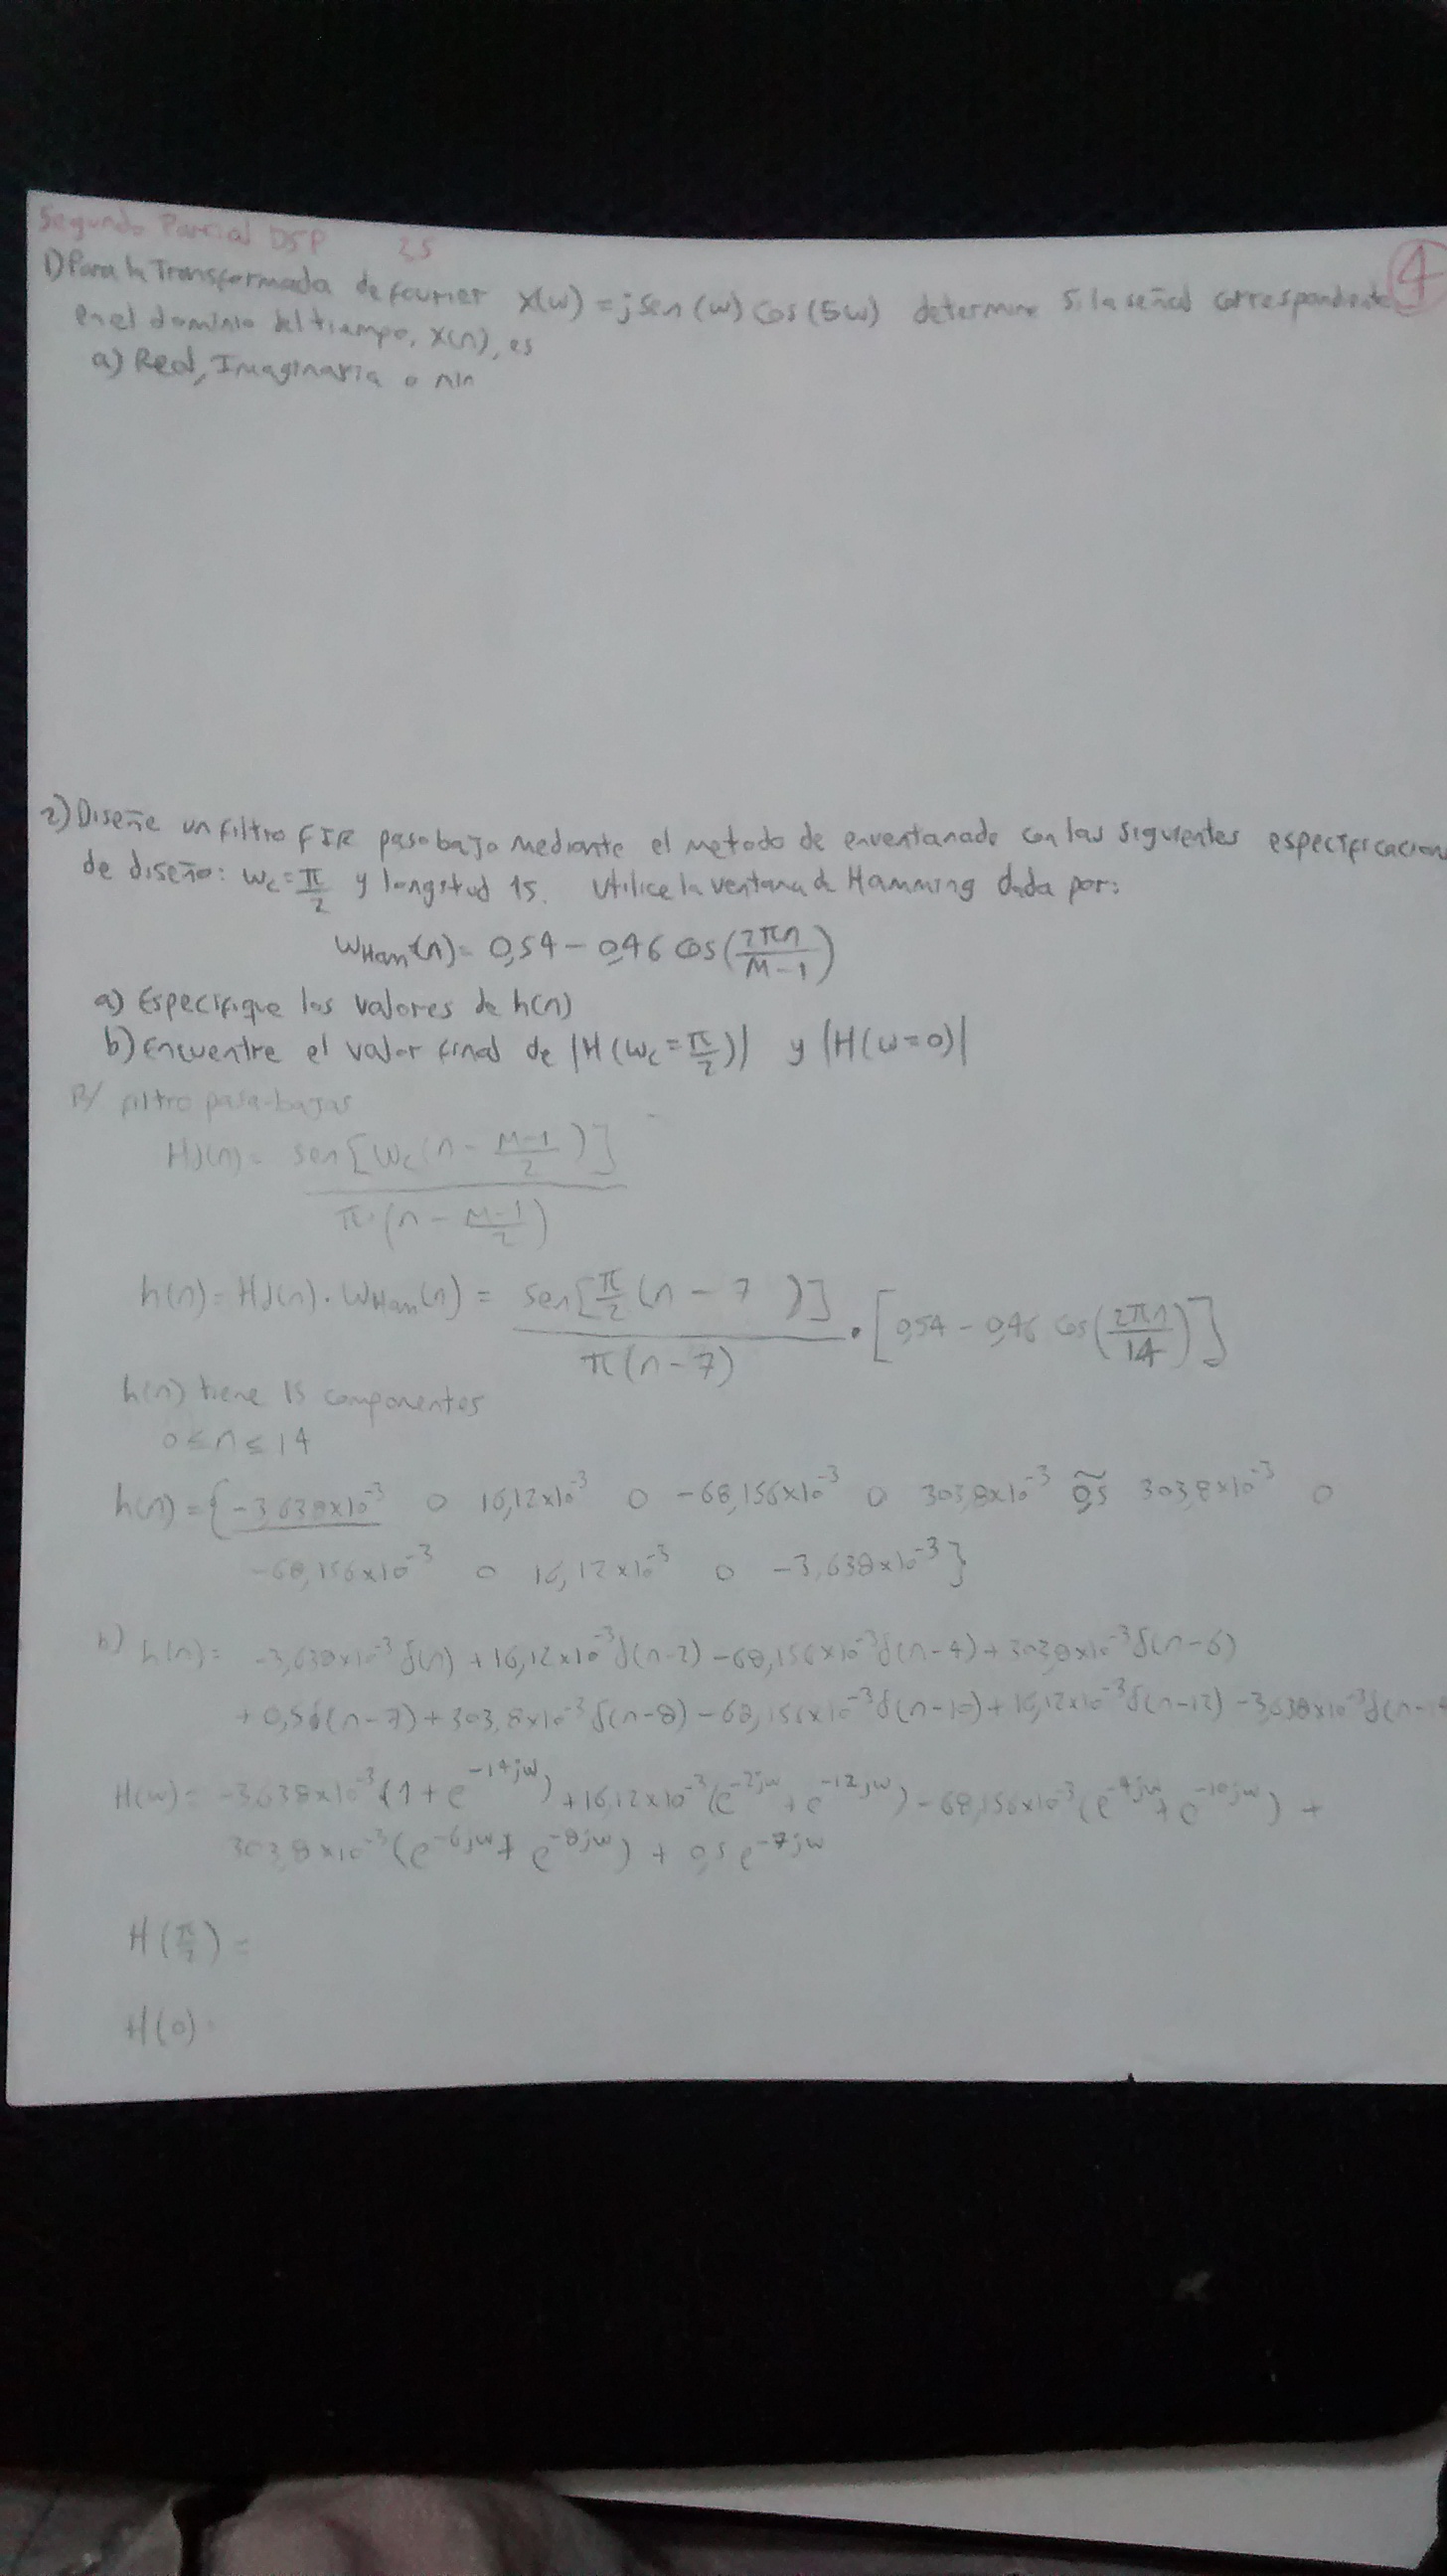 Segundo Parcial DSP 25
4
1) Para la Transformada de fourier X(w) = j sen(w) cos(5w) determine si la señal correspondiente
en el dominio del tiempo, x(n), es
a) Real, Imaginaria o nin
2) Diseñe un filtro FIR pasobajo mediante el metodo de enventanado con las siguientes especificacion
de diseño: wc = π/2 y longitud 15. Utilice la ventana de Hamming dada por:
wHam(n) = 0,54 - 0,46 cos(2πn/(M-1))
a) Especifique los valores de h(n)
b) Encuentre el valor final de |H(wc = π/2)| y |H(w=0)|
R/ filtro pasa-bajas
Hd(n) = sen[wc(n - (M-1)/2)] / π·(n - (M-1)/2)
h(n) = Hd(n) · wHam(n) = sen[π/2 (n - 7)] / π(n-7) · [0,54 - 0,46 cos(2πn/14)]
h(n) tiene 15 componentes
0 ≤ n ≤ 14
h(n) = {-3,638x10^-3 0 16,12x10^-3 0 -68,156x10^-3 0 303,8x10^-3 0,5 303,8x10^-3 0
-68,156x10^-3 0 16,12x10^-3 0 -3,638x10^-3}
b) h(n) = -3,638x10^-3 δ(n) + 16,12x10^-3 δ(n-2) - 68,156x10^-3 δ(n-4) + 303,8x10^-3 δ(n-6)
+ 0,5δ(n-7) + 303,8x10^-3 δ(n-8) - 68,156x10^-3 δ(n-10) + 16,12x10^-3 δ(n-12) - 3,638x10^-3 δ(n-14
H(w) = -3,638x10^-3 (1 + e^-14jw) + 16,12x10^-3 (e^-2jw + e^-12jw) - 68,156x10^-3 (e^-4jw + e^-10jw) +
303,8x10^-3 (e^-6jw + e^-8jw) + 0,5 e^-7jw
H(π/2) =
H(0) =